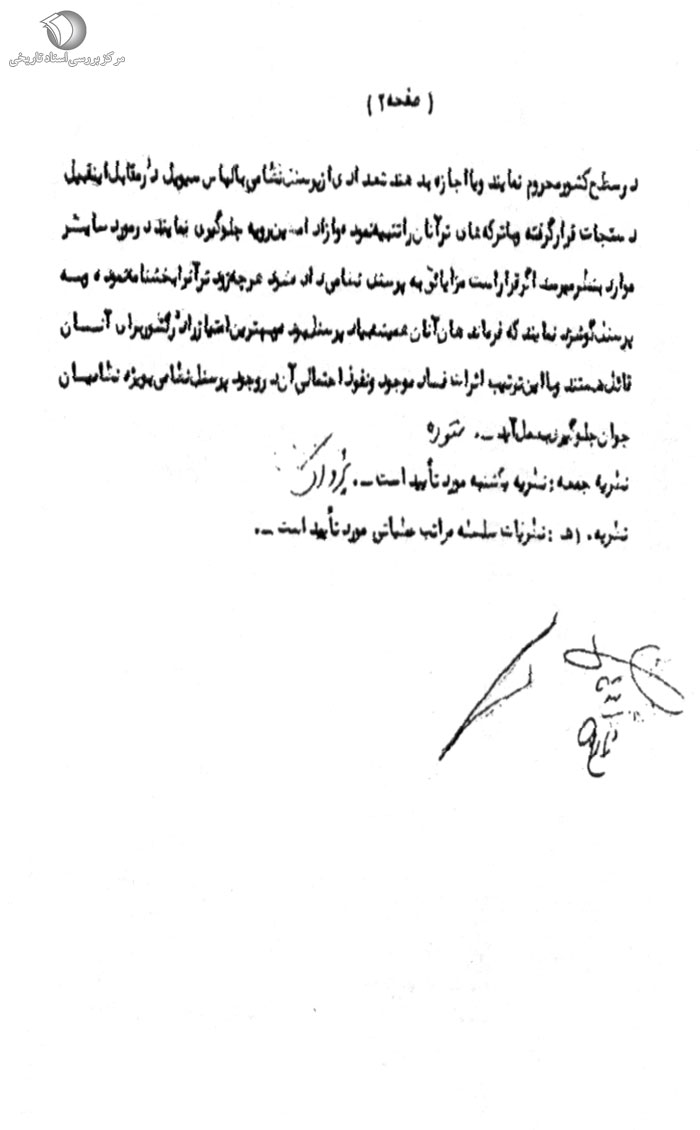 مرکز بررسی اسناد تاریخی
( صفحه ۲ )
در سطح کشور محروم نمایند و یا اجازه بدهند تعدادی از پرسنل نظامی با لباس سویل در مقابل اینقبیل
دستجات قرار گرفته و با ترکه های تر آنان را تنبیه نموده و از ادامه این رویه جلوگیری نمایند در مورد سایر
موارد بنظر میرسد اگر قرار است مزایائی به پرسنل نظامی داده شود هر چه زودتر آنرا بخشنامه نموده و به
پرسنل گوشزد نمایند که فرماندهان آنان همیشه بیاد پرسنل بوده بهترین امتیاز را در کشور برای آنان
قائل هستند و با این ترتیب اثرات فساد موجود و نفوذ احتمالی آن در وجود پرسنل نظامی بویژه نظامیان
جوان جلوگیری بعمل آید ــ.
نظریه جمعه : نظریه یکشنبه مورد تأیید است ــ.
نظریه ۱۰ هـ : نظریات سلسله مراتب عملیاتی مورد تأیید است ــ.